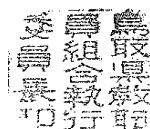 鳥取県教職
員組合執行
委員長印